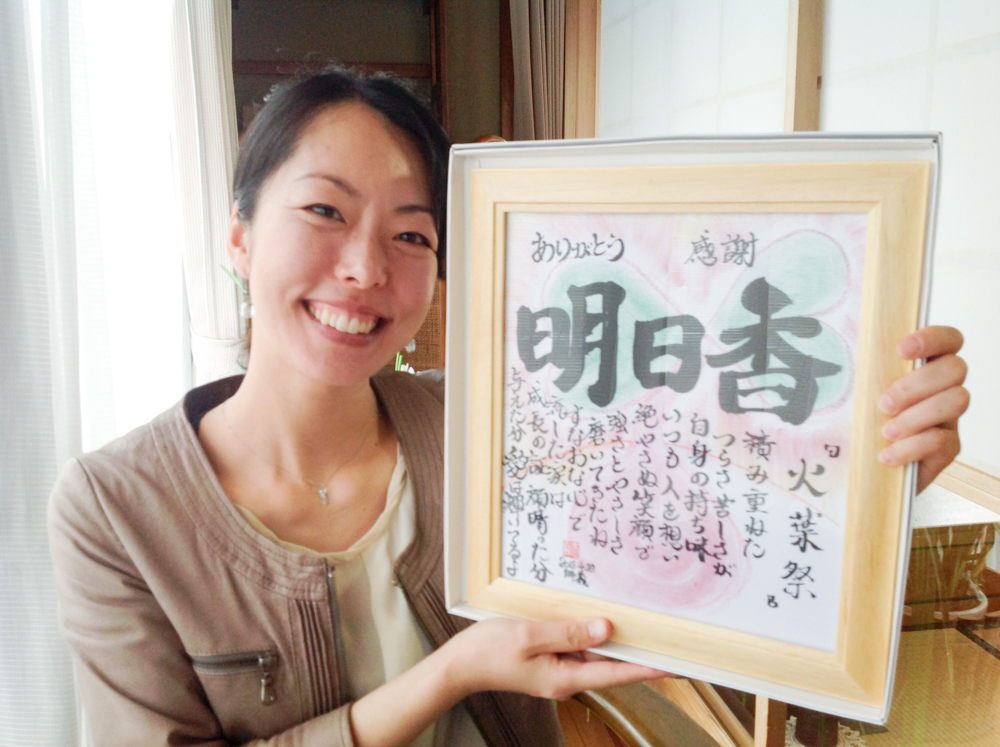 ありがとう 感謝
明日香
火葉祭
積み重ねた
つらさ苦しさが
自身の持ち味
いつも人を想い
絶やさぬ笑顔で
強さとやさしさ
磨いてきたね
すなおな心で
流した涙は
成長の証 顔晴った分
与えた分